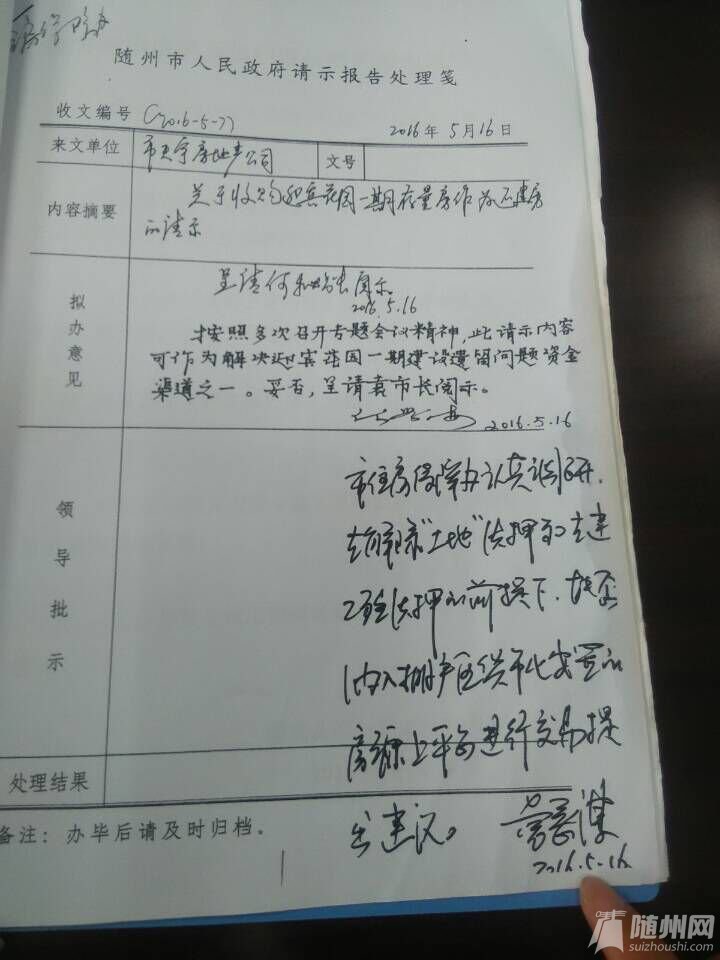 随州市人民政府请示报告处理笺
收文编号 (2016-5-77) 2016年5月16日
来文单位 市 房地产公司 文号
内容摘要 关于收购迎宾花园一期存量房作为还建房
的请示
拟办意见 呈请何秘书长阅示
2016.5.16
按照多次召开专题会议精神,此请示内容
可作为解决迎宾花园一期建设遗留问题资金
渠道之一。妥否,呈请袁市长阅示。
2016.5.16
领导批示 市住房保障办认真调研,
在解除"土地"抵押和在建
工程抵押的前提下,是否
纳入棚户区货币化安置的
房源上平台进行交易提
出建议。
2016.5.16
处理结果
备注:办毕后请及时归档。
随州网
suizhoushi.com